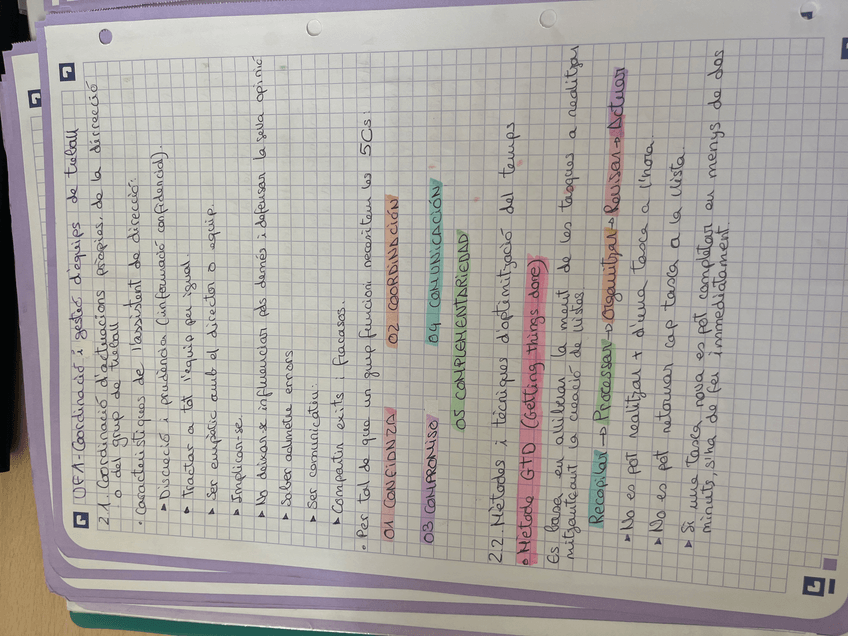 UF1-Coordinació i gestió d'equips de treball
2.1. Coordinació d'actuacions pròpies, de la direcció
o del grup de treball
• Característiques de l'assistent de direcció:
▸ Discreció i prudència (informació confidencial).
▸ Tractar a tot l'equip per igual.
▸ Ser empàtic amb el director o equip.
▸ Implicar-se.
▸ No deixar-se influenciar pds demés i defensar la seva opinió
▸ Saber admetre errors
▸ Ser comunicatiu.
▸ Compartir exits i fracasos
• Per tal de que un grup funcioni necesitem les 5Cs:
01 CONFIANZA 02 COORDINACIÓN
03 COMPROMISO 04 COMUNICACIÓN
05 COMPLEMENTARIEDAD
2.2. Mètodes i tècniques d'optimització del temps
• Mètode GTD (Getting things done)
Es basa en alliberar la ment de les tasques a realitzar
mitjançant la creació de llistes
Recopilar → Processar → Organitzar → Revisar → Actuar
▸ No es pot realitzar + d'una tasca a l'hora.
▸ No es pot retornar cap tasca a la llista.
▸ Si una tasca nova es pot completar en menys de dos
minuts, s'ha de fer immediatament.